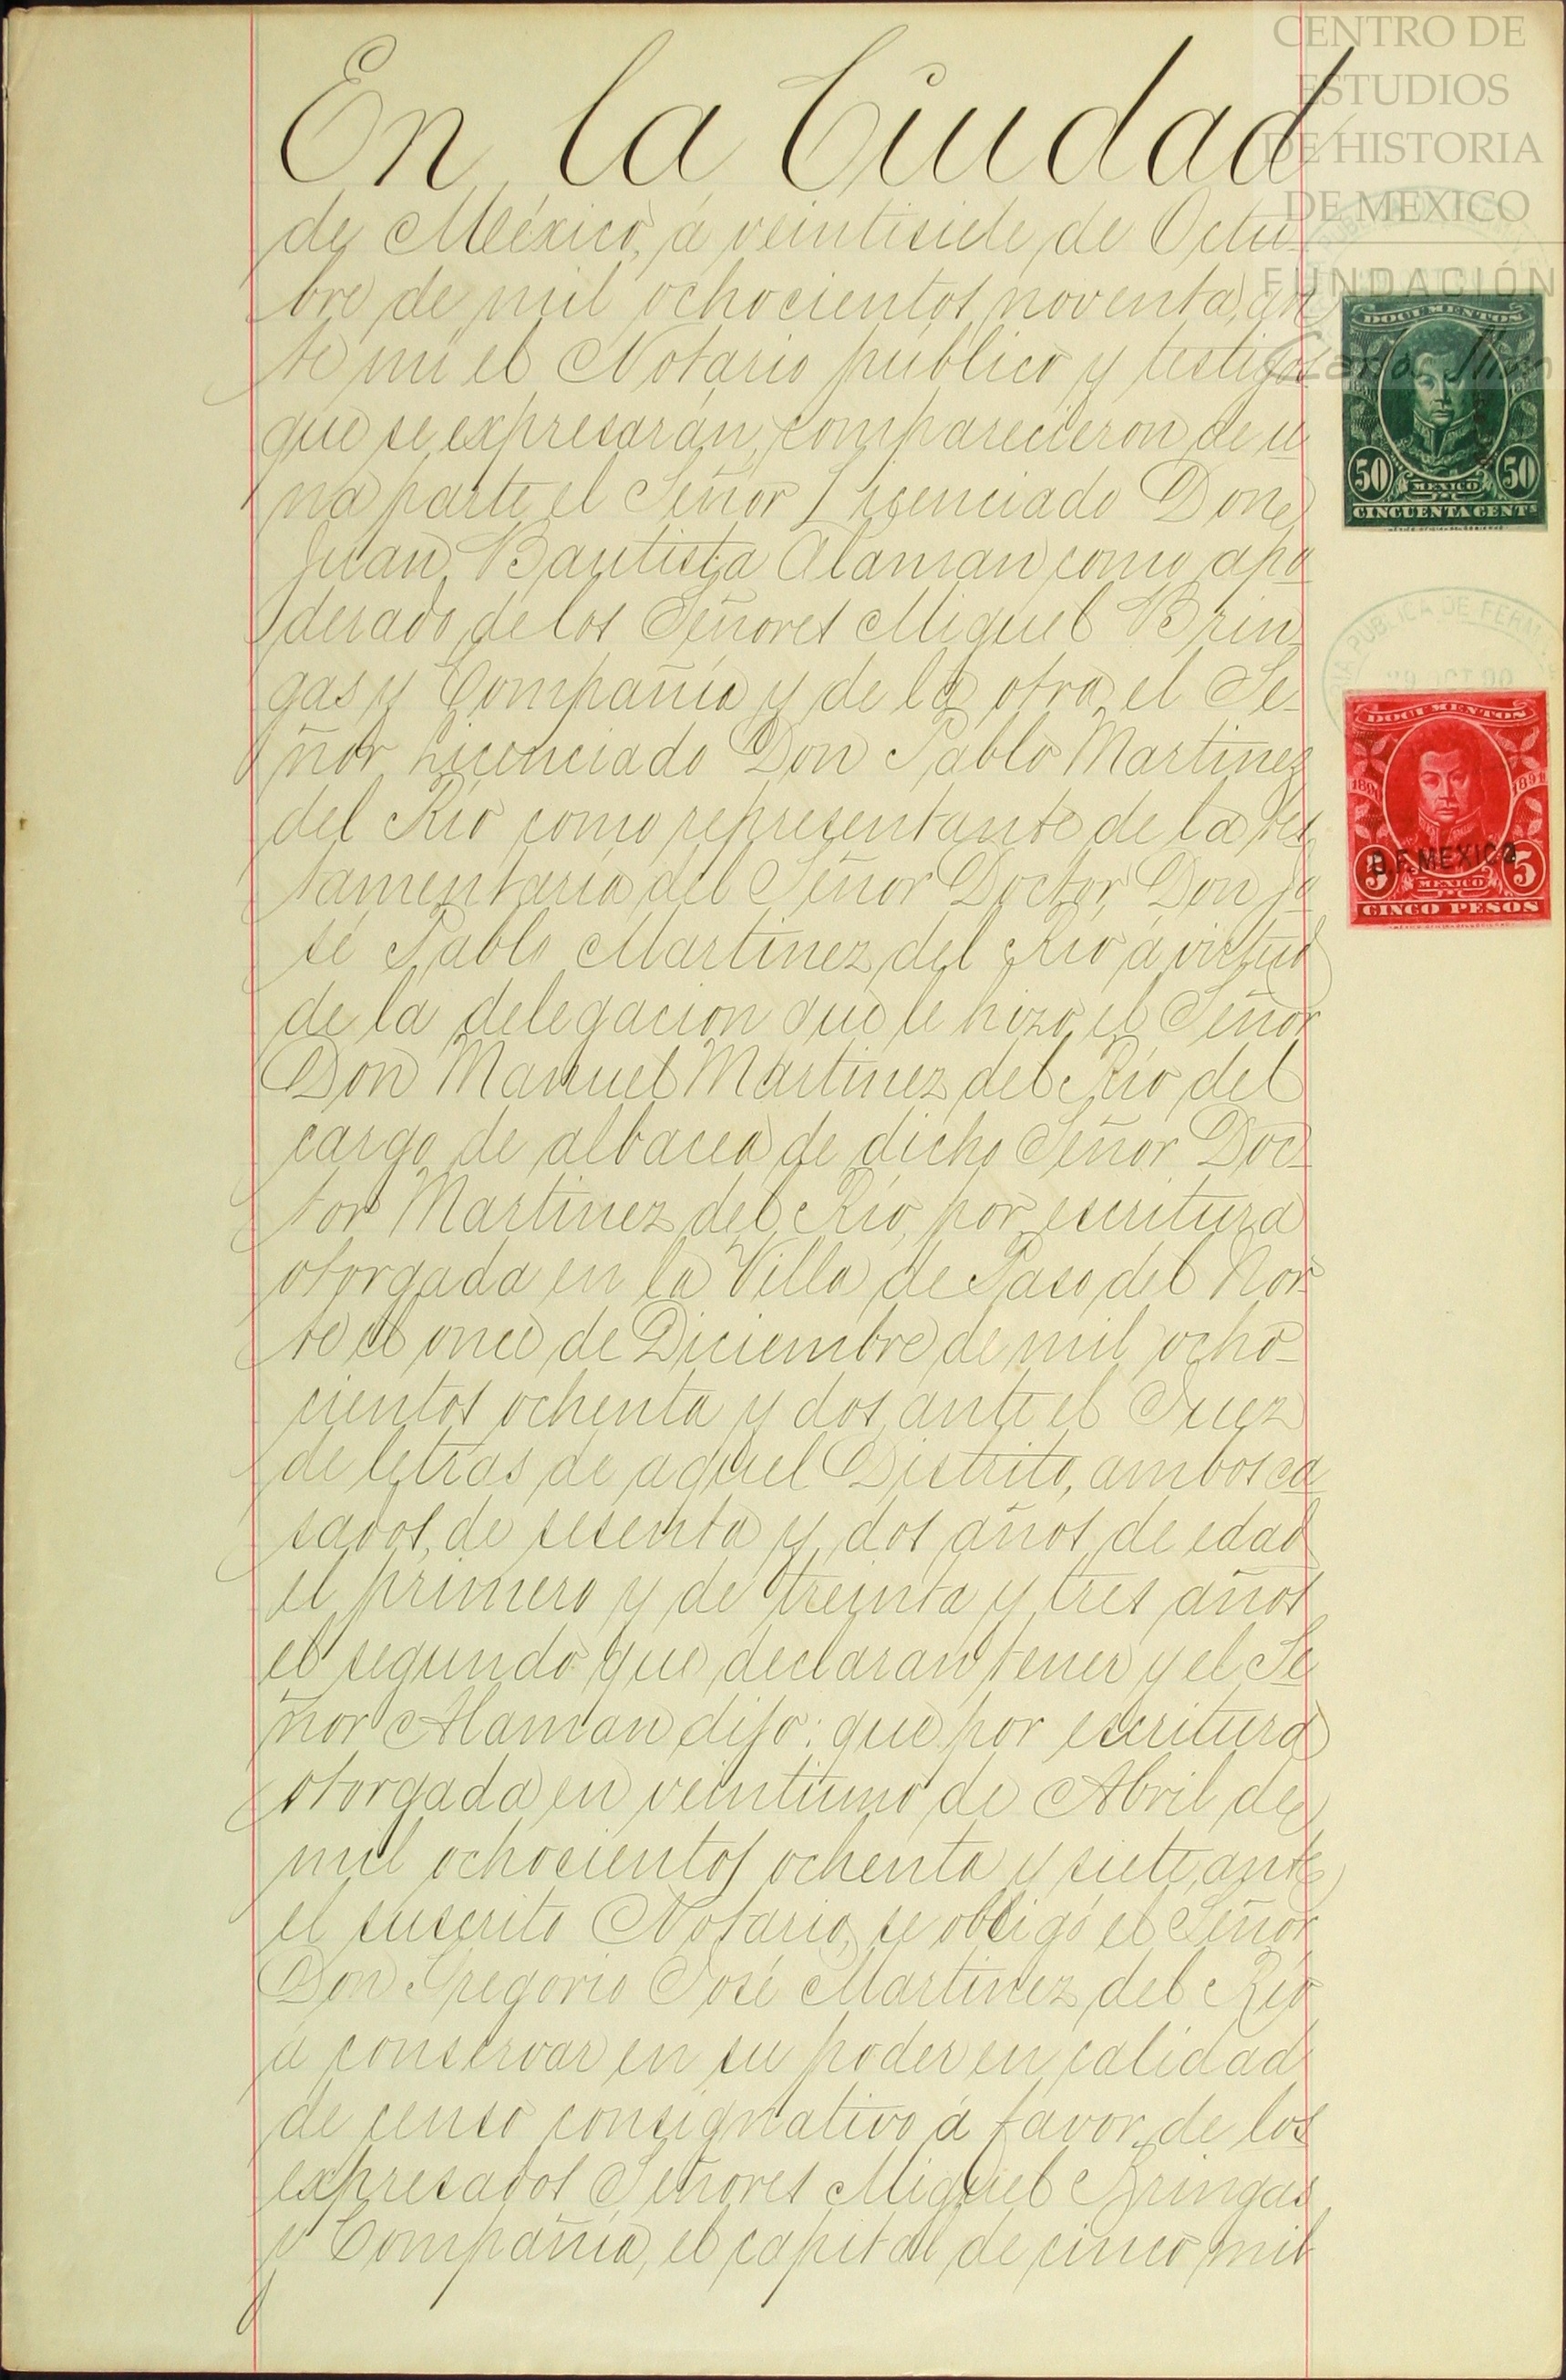 En la Ciudad
de México, á veintisiete de Octu-
bre de mil ochocientos noventa, an
te mi el Notario público y testigos
que se expresarán, comparecieron de u
na parte el Señor Licenciado Don
Juan Bautista Alaman como apo
derado de los Señores Miguel Brin-
gas y Compañia y de la otra el Se-
ñor Licenciado Don Pablo Martinez
del Rio como representante de la tes
tamentaria del Señor Doctor Don Jo
sé Pablo Martinez del Rio á virtud
de la delegacion que le hizo el Señor
Don Manuel Martinez del Rio del
cargo de albacea de dicho Señor Doc-
tor Martinez del Rio, por escritura
otorgada en la Villa de Paso del Nor-
te el once de Diciembre de mil ocho-
cientos ochenta y dos ante el Juez
de letras de aquel Distrito, ambos ca
sados, de sesenta y dos años de edad
el primero y de treinta y tres años
el segundo que declaran tener y el Se
ñor Alaman dijo: que por escritura
otorgada en veintiuno de Abril de
mil ochocientos ochenta y siete, ante
el suscrito Notario, se obligó el Señor
Don Gregorio José Martinez del Rio
á conservar en su poder en calidad
de censo consignativo á favor de los
expresados Señores Miguel Bringas
y Compañia, el capital de cinco mil
CENTRO DE
ESTUDIOS
DE HISTORIA
DE MEXICO
FUNDACIÓN
DOCUMENTOS
50 MEXICO 50
CINCUENTA CENTS
PUBLICA DE FERN
DOCUMENTOS
1890 1891
D.F. MEXICO
5 MEXICO 5
CINCO PESOS